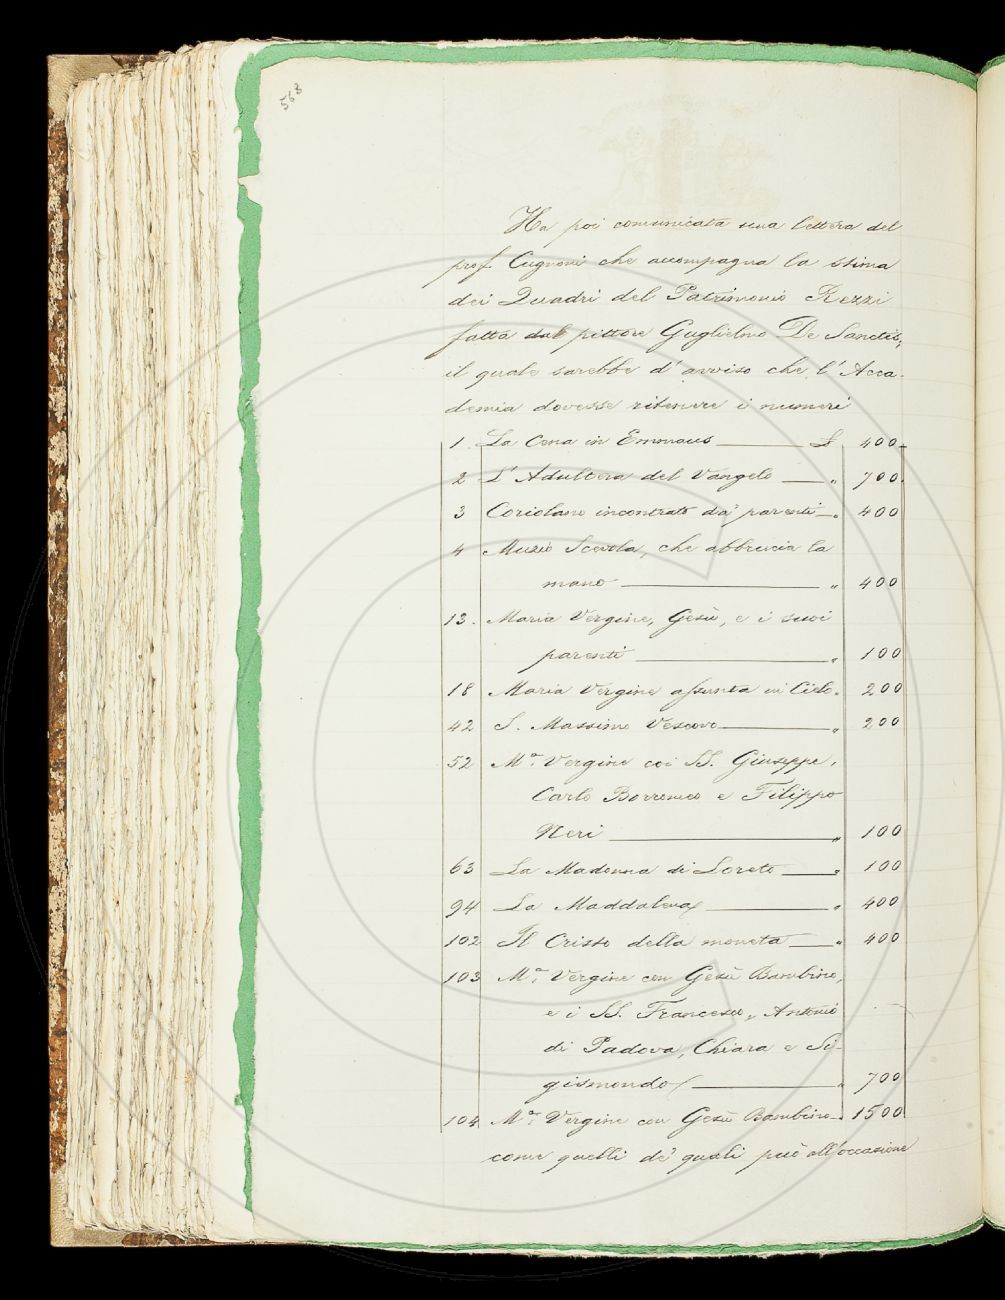 568
Ha poi comunicata una lettera del
prof. Cugnoni che accompagna la stima
dei Quadri del Patrimonio Rezzi
fatta dal pittore Guglielmo De Sanctis,
il quale sarebbe d'avviso che l'Acca-
demia dovesse ritenere i numeri
1. La Cena in Emmaus £ 400
2 L'Adultera del Vangelo " 700
3 Coriolano incontrato da' parenti " 400
4 Muzio Scevola, che abbrucia la
mano " 400
13. Maria Vergine, Gesù, e i suoi
parenti " 100
18 Maria Vergine assunta in Cielo " 200
42 S. Massimo Vescovo " 200
52 Mª. Vergine coi SS. Giuseppe,
Carlo Borromeo e Filippo
Neri " 100
63 La Madonna di Loreto " 100
94 La Maddalena " 400
102 Il Cristo della moneta " 400
103 Mª. Vergine con Gesù Bambino,
e i SS. Francesco, Antonio
di Padova, Chiara e Si-
gismondo " 700
104 Mª. Vergine con Gesù Bambino " 1500
come quelli de' quali può all'occasione